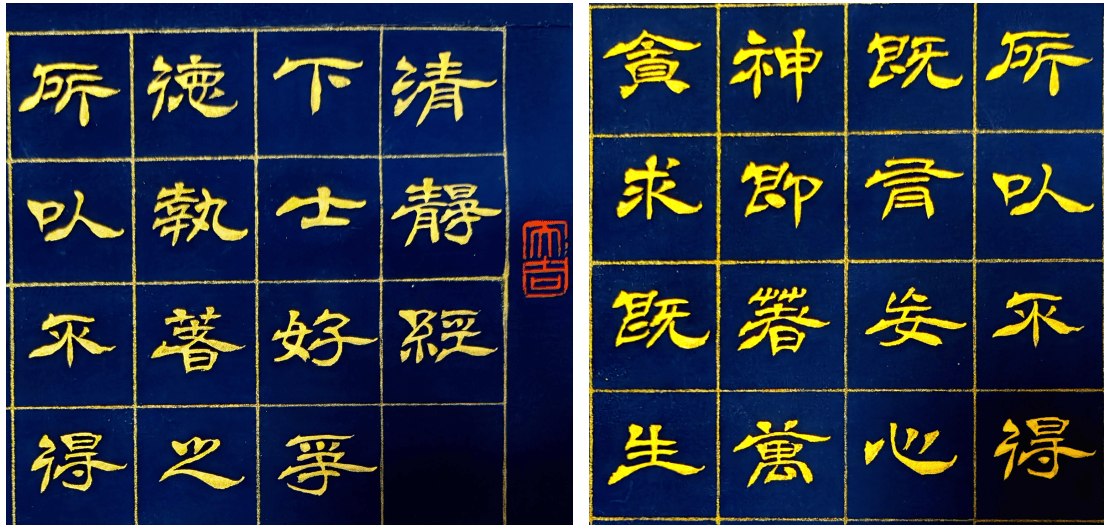 大吉
清靜經
下士好爭
德執著之
所以不得
所以不得
既有妄心
神即著萬
貪求既生